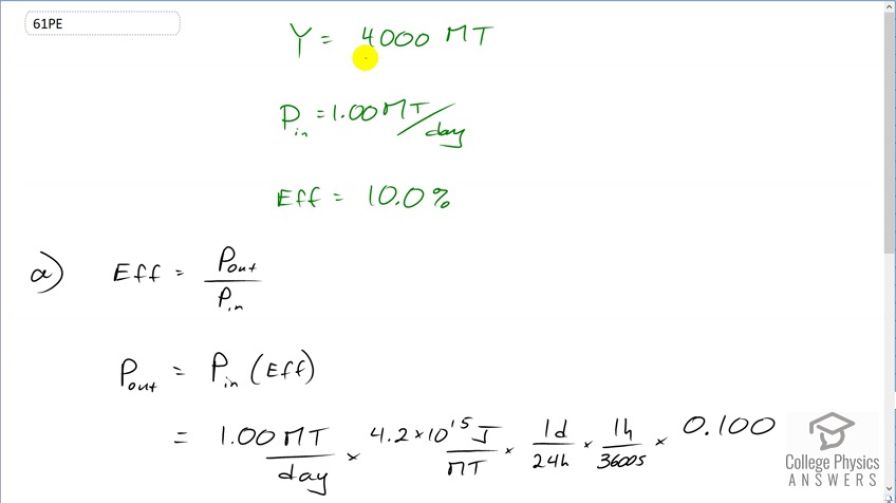 61PE
Y = 4000 MT
P_in = 1.00 MT/day
Eff = 10.0%
a) Eff = P_out / P_in
P_out = P_in (Eff)
= 1.00 MT/day × 4.2×10^15 J/MT × 1d/24h × 1h/3600s × 0.100
College Physics
ANSWERS